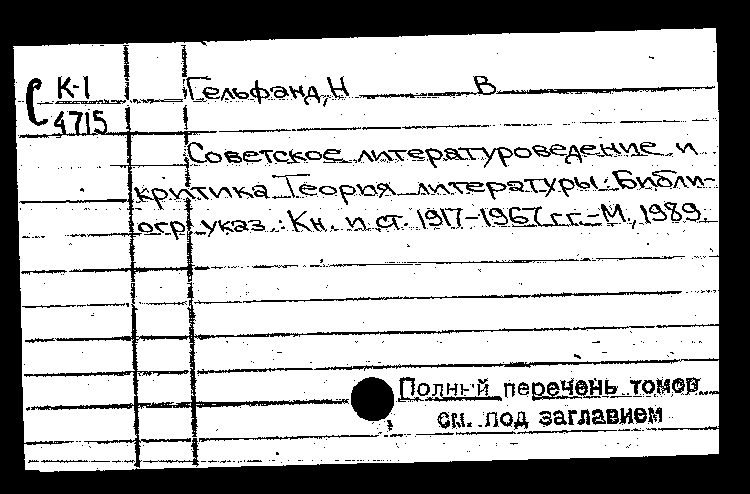 С К-1
4715
Гельфанд, Н В
Советское литературоведение и
критика Теория литературы: Библи-
огр указ.: Кн. и ст. 1917-1967 гг.-М, 1989.
Полный перечень томов
см. под заглавием